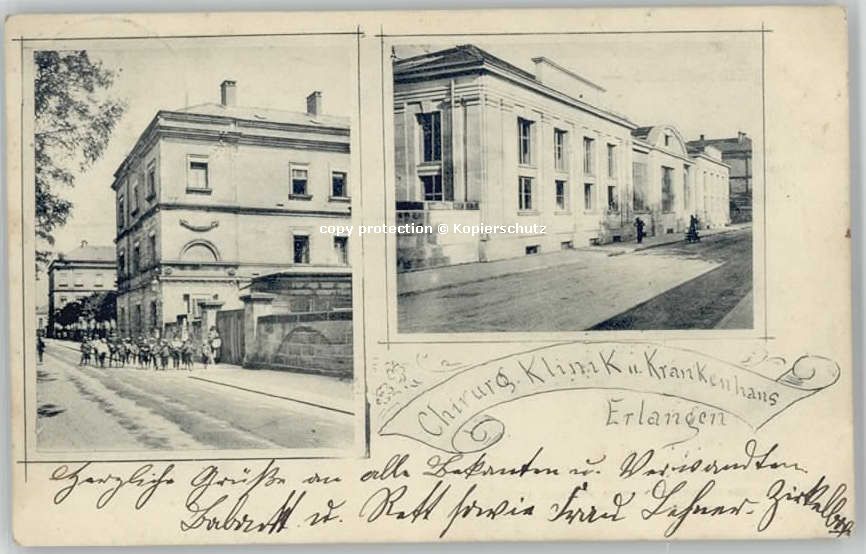 copy protection © Kopierschutz
Chirurg. Klinik u. Krankenhaus
Erlangen
Herzliche Grüße an alle Bekannten u. Verwandten.
u. Rett sowie Frau Lehner-